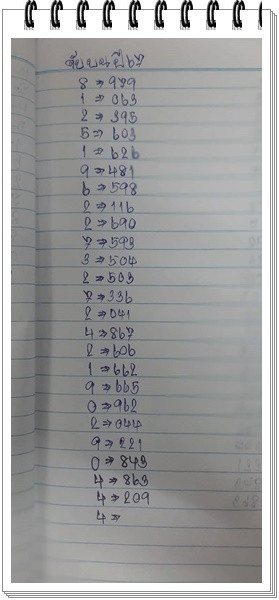 จับบนปี67
8⇒979
1⇒063
2⇒395
5⇒603
1⇒626
9⇒481
6⇒598
2⇒116
2⇒690
7⇒593
3⇒504
2⇒503
7⇒336
2⇒041
4⇒867
2⇒606
1⇒662
9⇒665
0⇒962
2⇒044
9⇒221
0⇒843
4⇒863
4⇒209
4⇒